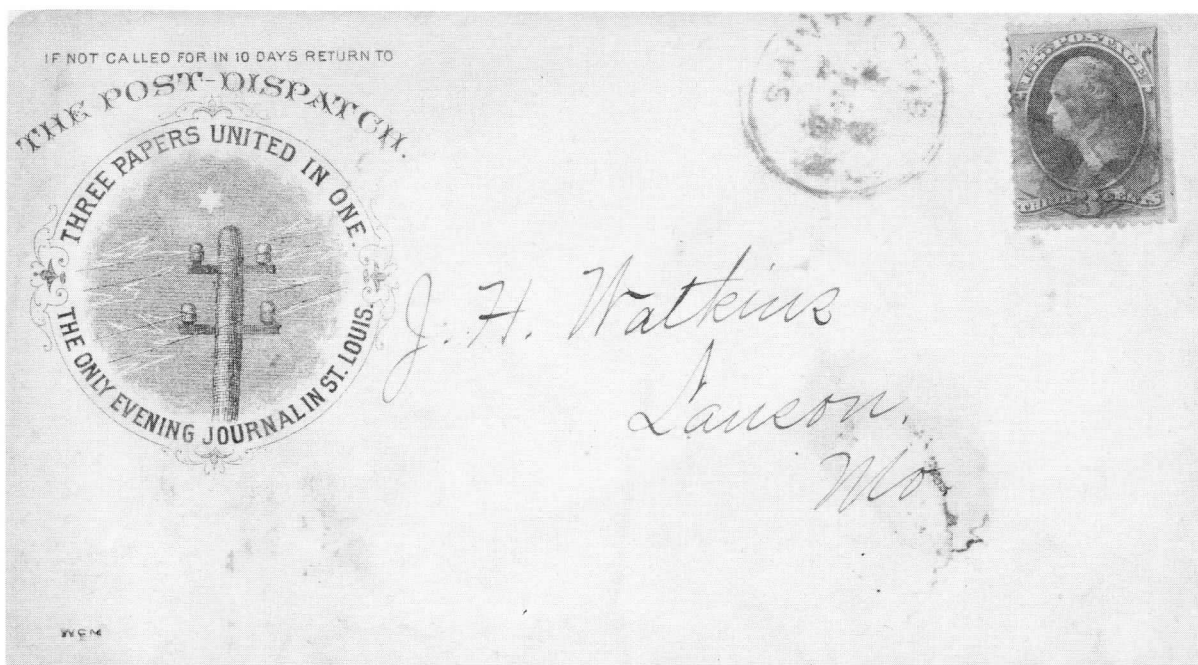 IF NOT CALLED FOR IN 10 DAYS RETURN TO
THE POST-DISPATCH.
THREE PAPERS UNITED IN ONE.
THE ONLY EVENING JOURNAL IN ST. LOUIS.
SAINT LOUIS
U.S. POSTAGE
THREE 3 CENTS
J. H. Watkins
Lawson,
Mo
WCM